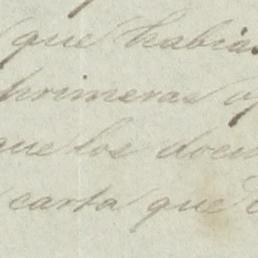 que habias
primeras of
que los docu
carta que